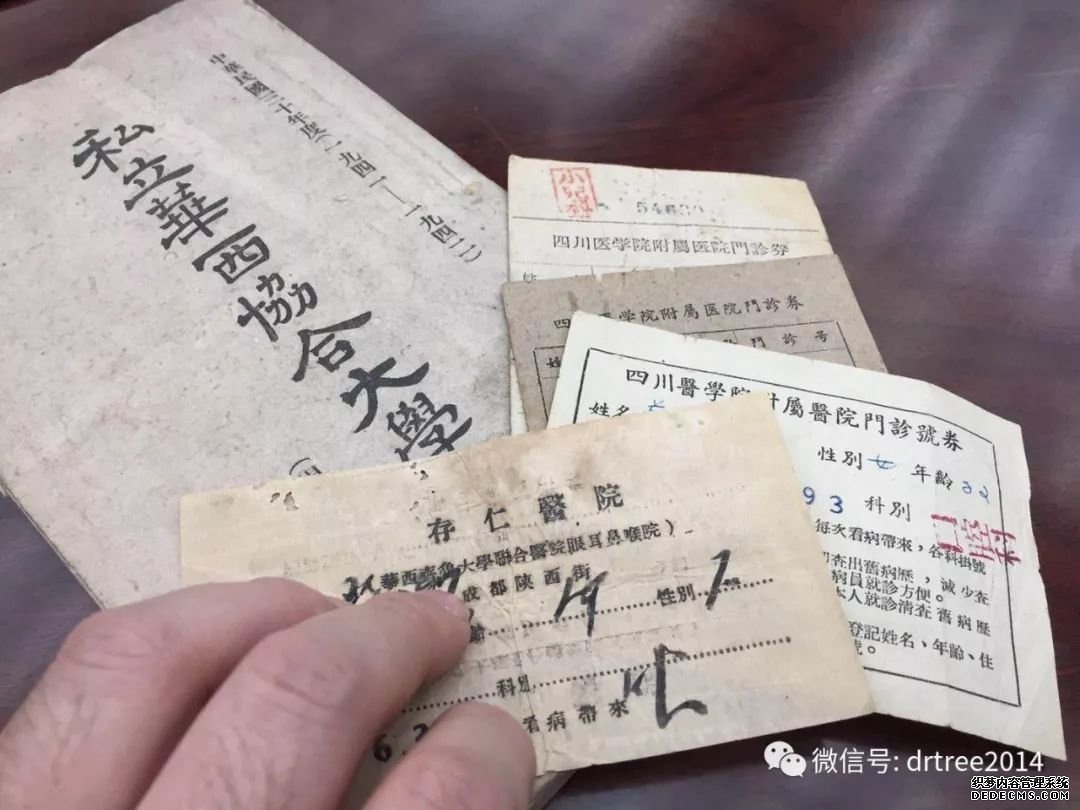 中華民國三十年度（一九四一——一九四二）
私立華西協合大學
（四
小兒科
54630
四川医学院附屬医院門診券
四川医学院附屬医院門診券
姓
門診号
四川醫學院附屬醫院門診號券
姓名
性別 女 年齡 22
93 科別
口腔科
每次看病帶來，各科掛號
查出舊病歷，減少查
病員就診方便。
本人就診清查舊病歷
登記姓名、年齡、住
號。
存仁醫院
華西齊魯大學聯合醫院眼耳鼻喉院）
成都陝西街
齡 19 性別
科別
看病帶來
6
微信号: drtree2014
织梦内容管理系统
DEDECMS.COM